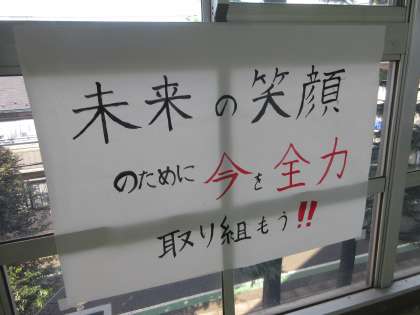 未来の笑顔
のために今を全力
取り組もう!!